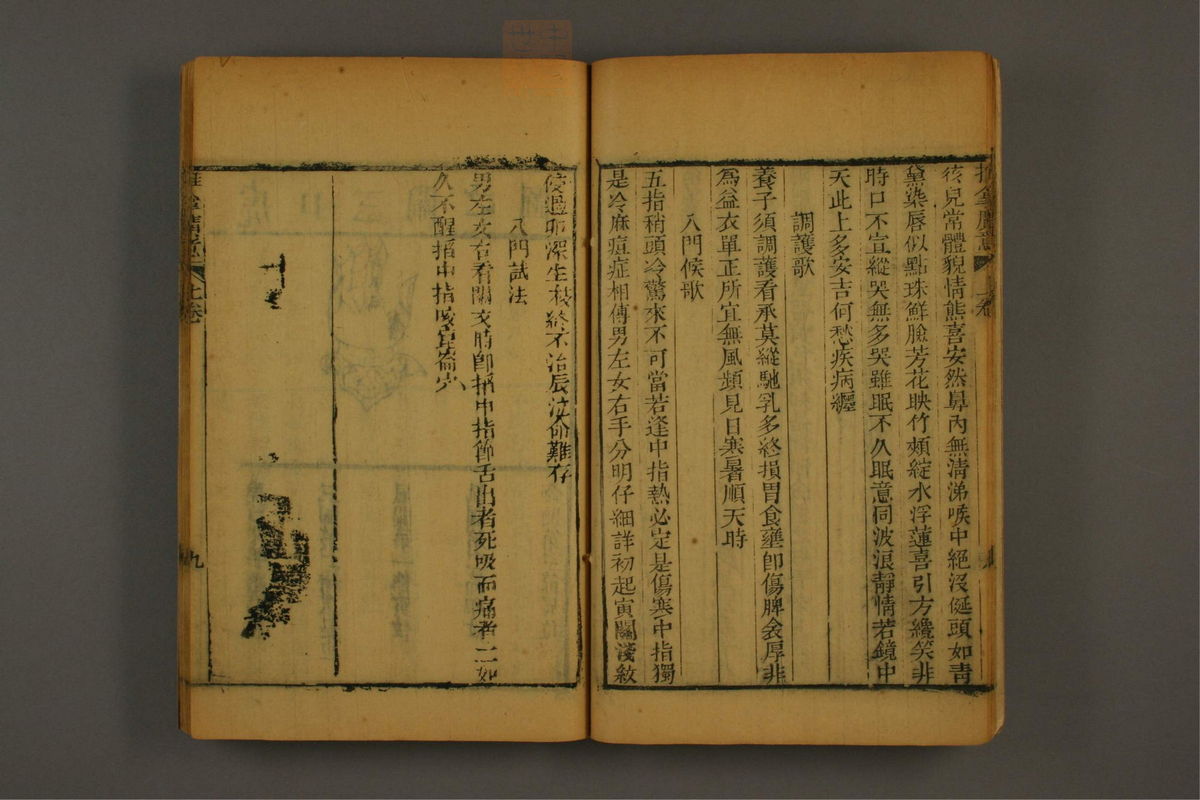 孩兒常體貌情態喜安然鼻內無清涕喉中絕沒涎頭如青
黛染唇似點珠鮮臉芳花映竹頰綻水浮蓮喜引方纔笑非
時口不豈縱哭無多哭雖眠不久眠意同波浪靜情若鏡中
天此上多安吉何愁疾病纏
調護歌
養子須調護看承莫縱馳乳多終損胃食壅即傷脾衾厚非
為益衣單正所宜無風頻見日寒暑順天時
八門候歌
五指稍頭冷驚來不可當若逢中指熱必定是傷寒中指獨
是冷麻痘症相傳男左女右手分明仔細詳初起寅關淺紋
侵過卯深生枝終不治辰位命難存
八門試法
男左女右看關交時即掐中指節舌出者死吸而痛者二如
久不醒掐中指
推拿
上卷
九